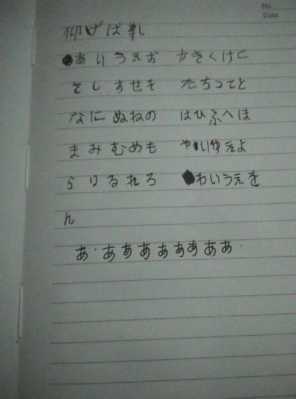 No.
Date
仰げば乳
あいうえお かきくけこ
さしすせそ たちつてと
なにぬねの はひふへほ
まみむめも やいゆえよ
らりるれろ わいうえを
ん
あ・ああああああああ・